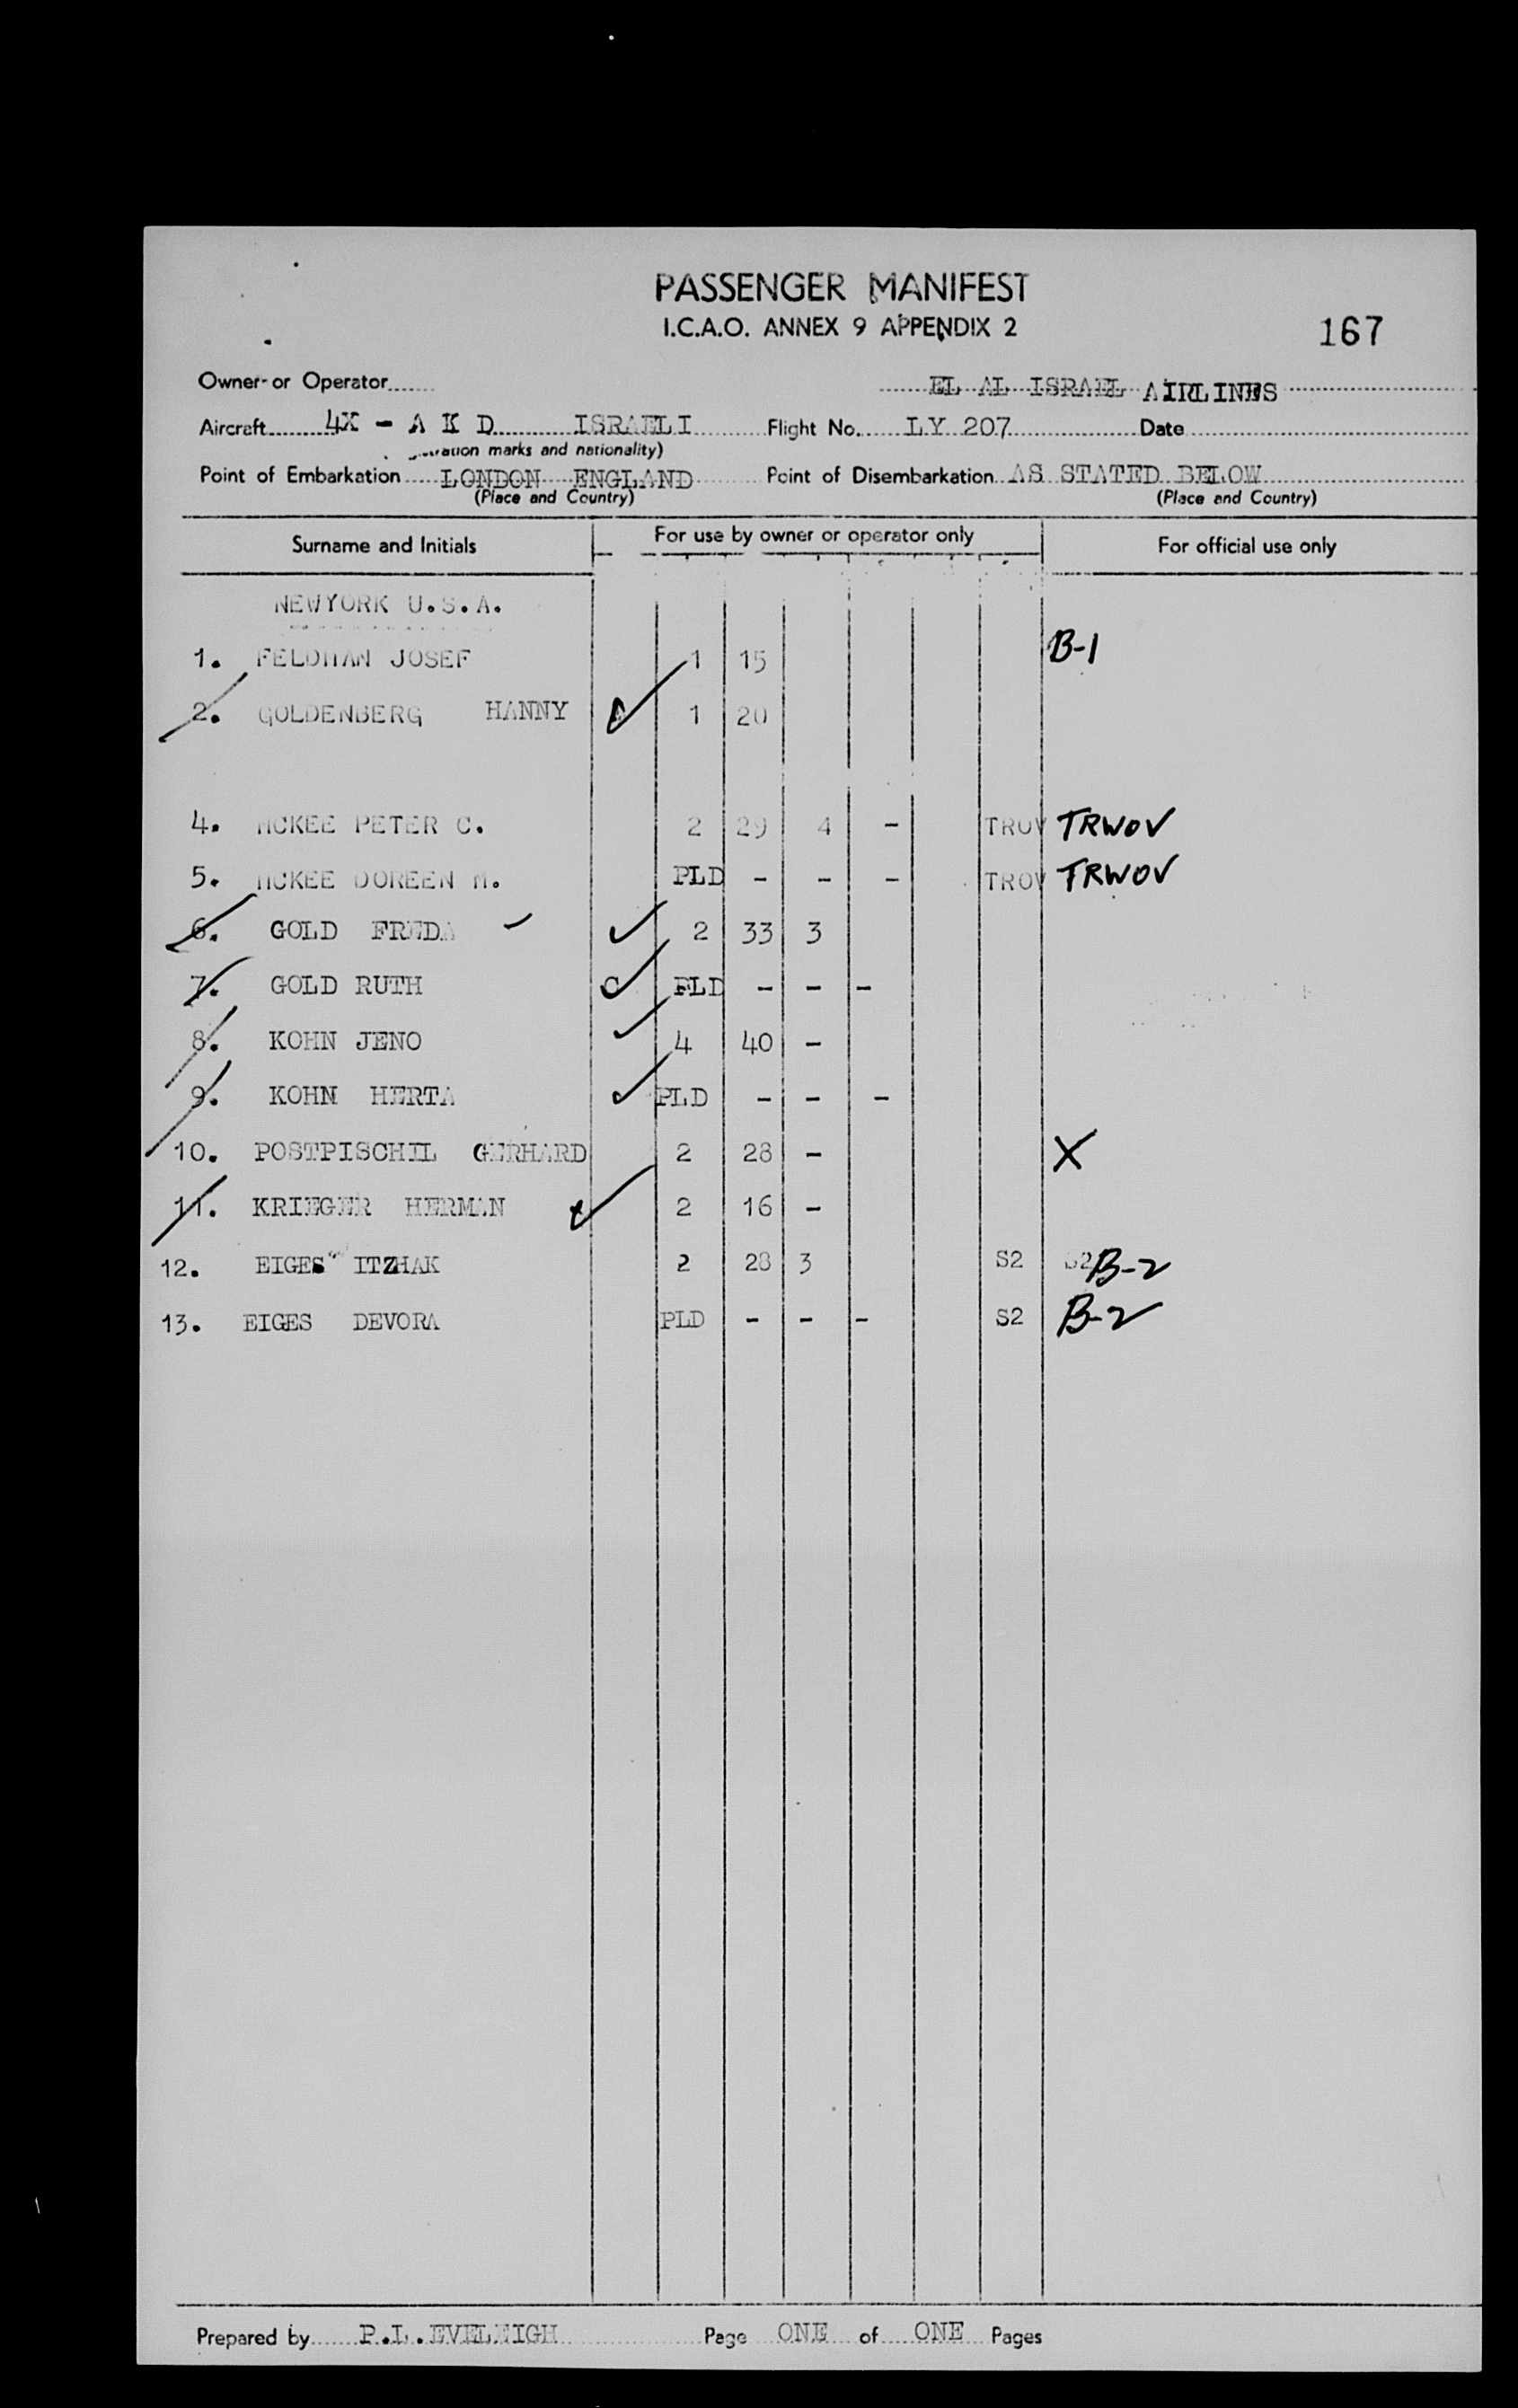 PASSENGER MANIFEST
I.C.A.O. ANNEX 9 APPENDIX 2
167
Owner or Operator EL AL ISRAEL AIRLINES
Aircraft 4X - A K D ISRAELI Flight No. LY 207 Date
marks and nationality)
Point of Embarkation LONDON ENGLAND Point of Disembarkation AS STATED BELOW
(Place and Country) (Place and Country)
Surname and Initials For use by owner or operator only For official use only
NEWYORK U.S.A.
1. FELDMAN JOSEF 1 15 B-1
2. GOLDENBERG HANNY 1 20
4. MCKEE PETER C. 2 29 4 - TROV TRWOV
5. MCKEE DOREEN M. PLD - - - TROV TRWOV
6. GOLD FREDA ✓ 2 33 3
7. GOLD RUTH C ✓ PLD - - -
8. KOHN JENO ✓ 4 40 -
9. KOHN HERTA ✓ PLD - - -
10. POSTPISCHIL GERHARD 2 28 - X
11. KRIEGER HERMAN ✓ 2 16 -
12. EIGES ITZHAK 2 28 3 S2 S2 B-2
13. EIGES DEVORA PLD - - - S2 B-2
Prepared by P.L.EVELEIGH Page ONE of ONE Pages